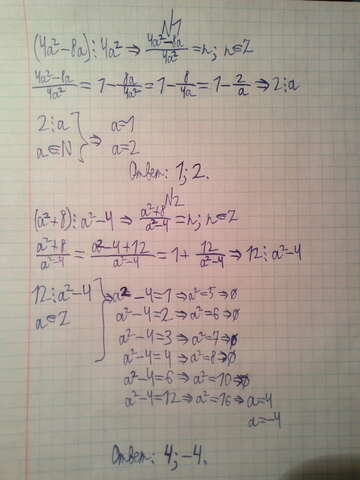 N1
(4a²-8a)⋮4a² ⇒ (4a²-8a)/4a² = n; n∈Z
(4a²-8a)/4a² = 1 - 8a/4a² = 1 - 8/4a = 1 - 2/a ⇒ 2⋮a
2⋮a } ⇒ a=1
a∈N a=2
Ответ: 1; 2.
N2
(a²+8)⋮a²-4 ⇒ (a²+8)/(a²-4) = n; n∈Z
(a²+8)/(a²-4) = (a²-4+12)/(a²-4) = 1 + 12/(a²-4) ⇒ 12⋮a²-4
12⋮a²-4 ] ⇒ a²-4=1 ⇒ a²=5 ⇒ ∅
a∈Z a²-4=2 ⇒ a²=6 ⇒ ∅
a²-4=3 ⇒ a²=7 ⇒ ∅
a²-4=4 ⇒ a²=8 ⇒ ∅
a²-4=6 ⇒ a²=10 ⇒ ∅
a²-4=12 ⇒ a²=16 ⇒ a=4
a=-4
Ответ: 4; -4.